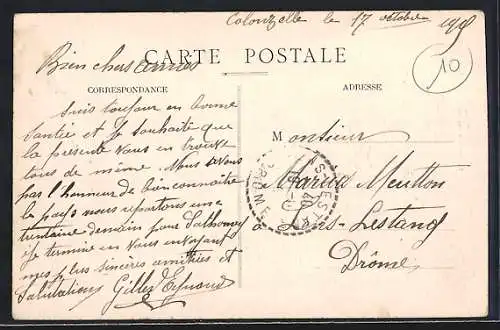 Colonzelle le 17 octobre 1918
CARTE POSTALE
10
Bien chers amis
CORRESPONDANCE
ADRESSE
suis toujour en bonne
santée et Je souhaité que
la presente vous en trouve
tous de même. Nous avons
pas l'honneur de bien connaitre
le pays nous repartons une
trentaine demain pour
Je termine en vous envoyant
mes plus sincères amitiées et
Salutations Gilles
Monsieur
Marius Moutton
Lens-Lestang
Drôme